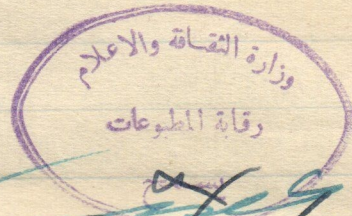 وزارة الثقافة والاعلام
رقابة المطبوعات
يسمح